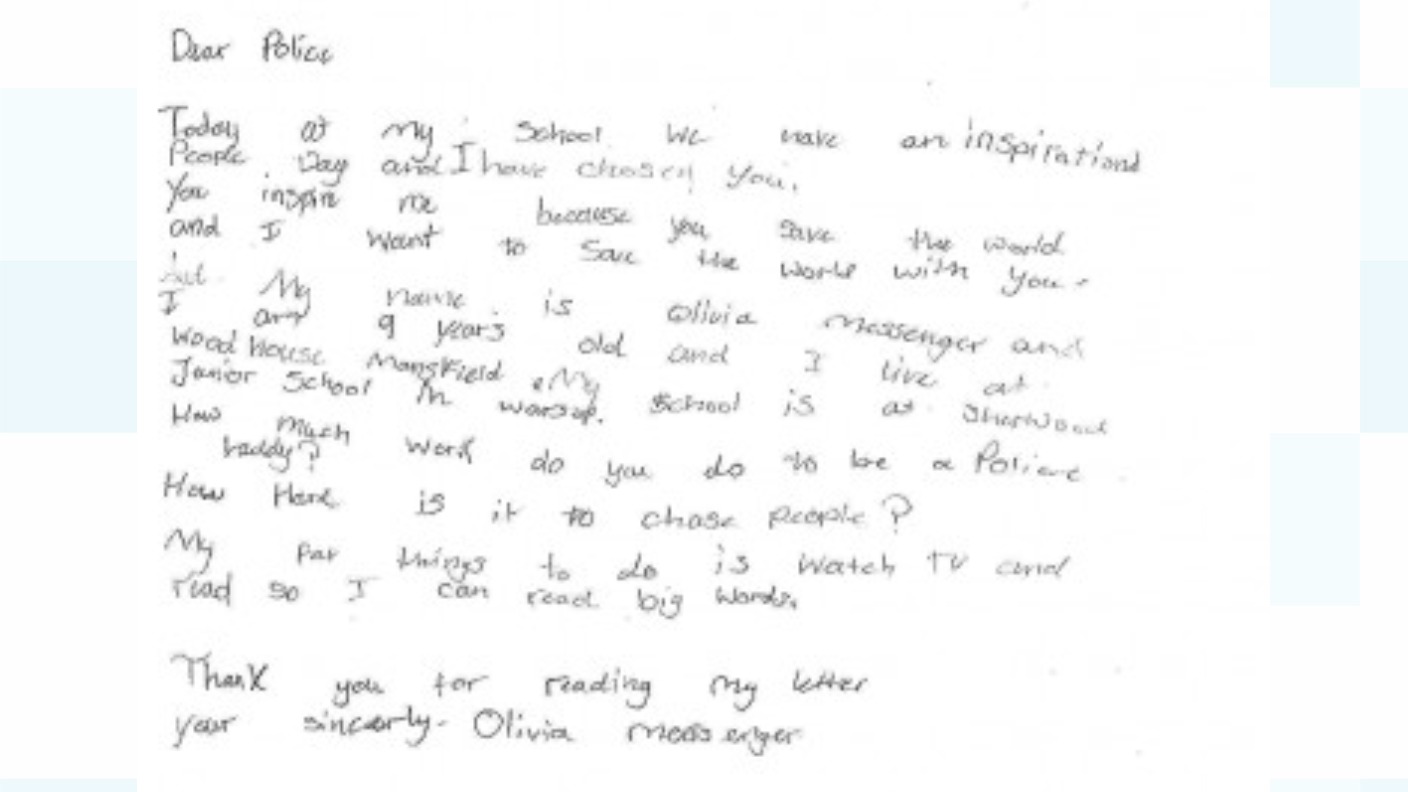 Dear Police
Today at my School we have an inspirational
People Day and I have chosen you.
You inspire me because you save the world
and I want to save the world with you.
My name is Olivia Messenger and
I am 9 years old and I live at
Wood House Mansfield. My School is at Sherwood
Junior School in warsop.
How much work do you do to be a Police
How Hard is it to chase people?
My fav things to do is Watch TV and
read so I can read big words.
Thank you for reading my letter
your sincerly- Olivia messenger